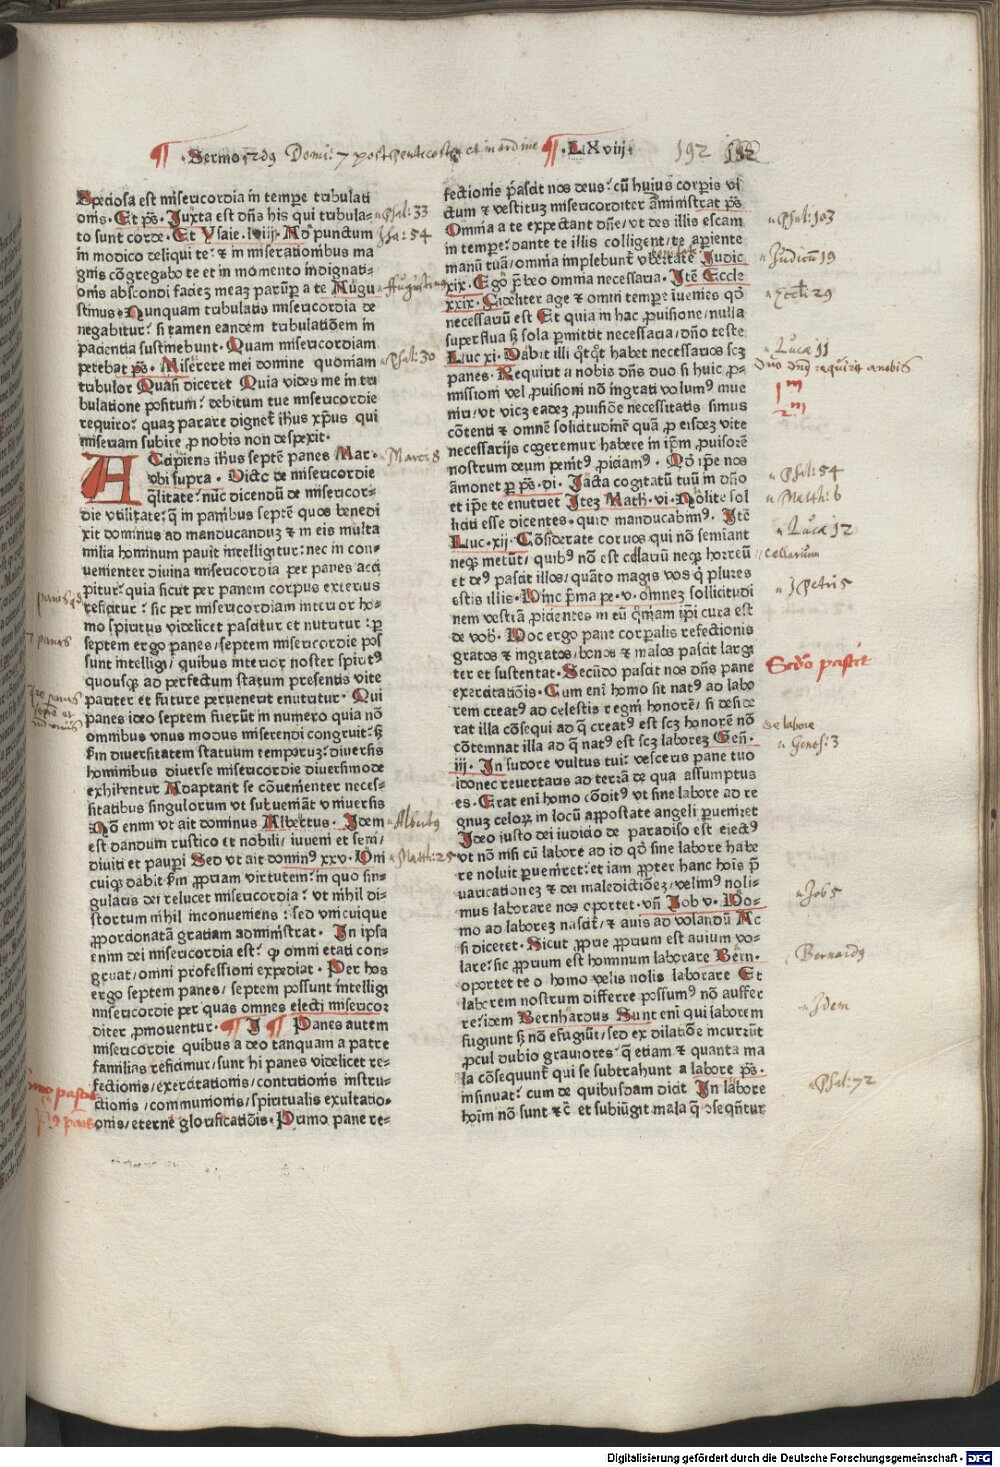 ¶ ·Sermo· 2dꝰ Domi: 7 post pentecosten et in ordine ¶ ·LXviij· 192
Speciosa est misericordia in tempe tribulati
onis· Et ps̄· Juxta est dn̄s his qui tribula⸗
to sunt corde· Et Ysaie· liiij· Ad punctum
in modico deliqui te: ⁊ in miserationibus ma
gnis cōgregabo te et in momento indignati⸗
onis abscondi faciez meaz parūꝑ a te Augu
stinus· Nunquam tribulatis misericordia de
negabitur: si tamen eandem tribulatiōem in
paciencia sustinebunt· Quam misericordiam
petebat ps̄· Miserere mei domine quoniam
tribulor Quasi diceret Quia vides me in tri
bulatione positum: debitum tue misericordie
requiro: quaz parare dignet̄ ihūs xp̄us qui
miseriam subire ꝓ nobis non despexit·
ACcipiens ihūs septē panes Mar·
vbi supra· Dicto de misericordie
q̄litate: nūc dicendū de misericor⸗
die vtilitate: q̄ in panibus septē quos benedi
xit dominus ad manducanduz ⁊ in eis multa
milia hominum pauit intelligitur: nec in con⸗
uenienter diuina misericordia per panes acci
pitur: quia sicut per panem corpus exterius
reficitur: sic per misericordiam interior ho⸗
mo spiritus videlicet pascitur et nutritur: ꝑ
septem ergo panes/septem misericordie pos
sunt intelligi/quibus interior noster spiritꝰ
quousqꝫ ad perfectum statum presentis vite
pariter et future peruenerit enutritur· Qui
panes ideo septem fuerūt in numero quia nō
omnibus vnus modus miserendi congruit: sꝫ
ẜm diuersitatem statuum temporuz: diuersis
hominibus diuerse misericordie diuersimode
exhibentur Adaptant se cōuenienter neces⸗
sitatibus singulorum vt subueniāt vniuersis
Nō enim vt ait dominus Albertus· Idem
est dandum rustico et nobili/iuueni et seni/
diuiti et pauperi Sed vt ait dominꝰ xxv· Vni
cuiqꝫ dabit ẜm ꝓpriam virtutem: in quo sin⸗
gularis dei relucet misericordia: vt nihil di⸗
stortum nihil inconueniens: sed vnicuique
ꝓporcionatā gratiam administrat· In ipsa
enim dei misericordia est: ꝙ omni etati con⸗
gruat/omni professioni expediat· Per hos
ergo septem panes/septem possunt intelligi
misericordie per quas omnes electi misericor
diter ꝓmouentur· ¶ I ¶ Panes autem
misericordie quibus a deo tanquam a patre
familias reficimur/sunt hi panes videlicet re⸗
fectionis/exercitationis/contritionis instru⸗
ctionis/communionis/spiritualis exultatio⸗
onis/eterne glorificatiōis· Primo pane re⸗
fectionis pascit nos deus: cū huius corpꝛis vi
ctum ⁊ vestituz misericorditer amministrat ps̄
Omnia a te expectant dn̄e/vt des illis escam
in tempe: dante te illis colligent/te apiente
manū tuā/omnia implebunt̄ vbertate Judic
xix· Ego p̄beo omnia necessaria· Itē Eccle
xxix· Fideliter age ⁊ omni tempe inuenies qd̄
necessariū est Et quia in hac ꝓuisione/nulla
superflua sꝫ sola ꝑmittit necessaria/dn̄o teste
Luc xi· Dabit illi q̄tq̄t habet necessarios scꝫ
panes· Requirit a nobis dn̄s duo si huic ꝓ⸗
missioni vel ꝓuisioni nō ingrati volumꝰ inue
niri/vt vicz eadez ꝓuisiōe necessitatis simus
cōtenti ⁊ omnē solicitudinē quā ꝓ eisdez vite
necessarijs cogeremur habere in ip̄m ꝓuisorē
nostrum deum penitꝰ ꝓiciamꝰ· Qd̄ ip̄e nos
āmonet ꝑ ps̄· di· Jacta cogitatū tuū in dn̄o
et ip̄e te enutriet Itez Math· vi· Nolite sol
liciti esse dicentes· quid manducabimꝰ· Itē
Luc· xij· Cōsiderate coruos qui nō seminant
neqꝫ metūt/quibꝰ nō est cellariū neqꝫ horreū
et deꝰ pascit illos/quāto magis vos q̄ plures
estis illis· Hinc p̄ma pe· v· omnez sollicitudi
nem vestrā ꝓicientes in eū qm̄iam ip̄i cura est
de vobꝰ· Hoc ergo pane corꝑalis refectionis
gratos ⁊ ingratos/bonos ⁊ malos pascit largi
ter et sustentat· Secūdo pascit nos dn̄s pane
exercitatiōis· Cum eni homo sit natꝰ ad labo
rem creatꝰ ad celestis regni honorē/si deside
rat illa cōsequi ad q̄ creatꝰ est scꝫ honorē nō
cōtemnat illa ad q̄ natꝰ est scꝫ laborez Gen̄·
iij· In sudore vultus tui: vesceris pane tuo
donec reuertaris ad terrā de qua assumptus
es· Erat eni homo cōditꝰ vt sine labore ad re
gnuz celoꝝ in locū apostate angeli ꝑueniret
Ideo iusto dei iudicio de paradiso est eiectꝰ
vt nō nisi cū labore ad id qd̄ sine labore habe
re noluit ꝑueniret: et iam ꝓpter hanc hoīs p̄
uaricationez ⁊ dei maledictiōez/velimꝰ noli⸗
mus laborare nos oportet· vn̄ Job v· Ho⸗
mo ad laborez nascit̄/⁊ auis ad volandū Ac
si diceret· Sicut ꝓprie ꝓprium est auium vo⸗
lare: sic ꝓprium est hominum laborare Bern·
oportet te o homo velis nolis laborare Et
laborem nostrum differre possumꝰ nō auffer
re: idem Bernhardus Sunt eni qui laborem
fugiunt sꝫ nō efugiūt/sed ex dilatiōe incurrūt
ꝓcul dubio grauiores: q̄ etiam ⁊ quanta ma
la cōsequunt̄ qui se subtrahunt a labore ps̄·
insinuat: cum de quibusdam dicit In labore
hoīm nō sunt ⁊c̄ et subiūgit mala q̄ ꝯseqn̄tur
Psal: 33
Isa: 54
Augustinꝰ
Psal: 30
Marci 8
Albertꝰ
Matth: 25
panes
7 panes
Psal: 103
Judicū 19
Eccli 29
Lucæ 11
duo dn̄s requirit a nobis
1m
2m
Psal: 54
Matth: 6
Lucæ 12
cellarium
1 Petri 5
Secdo pascit
de labore
Genes: 3
Job 5
Bernardꝰ
Idem
Psal: 72
Digitalisierung gefördert durch die Deutsche Forschungsgemeinschaft · DFG